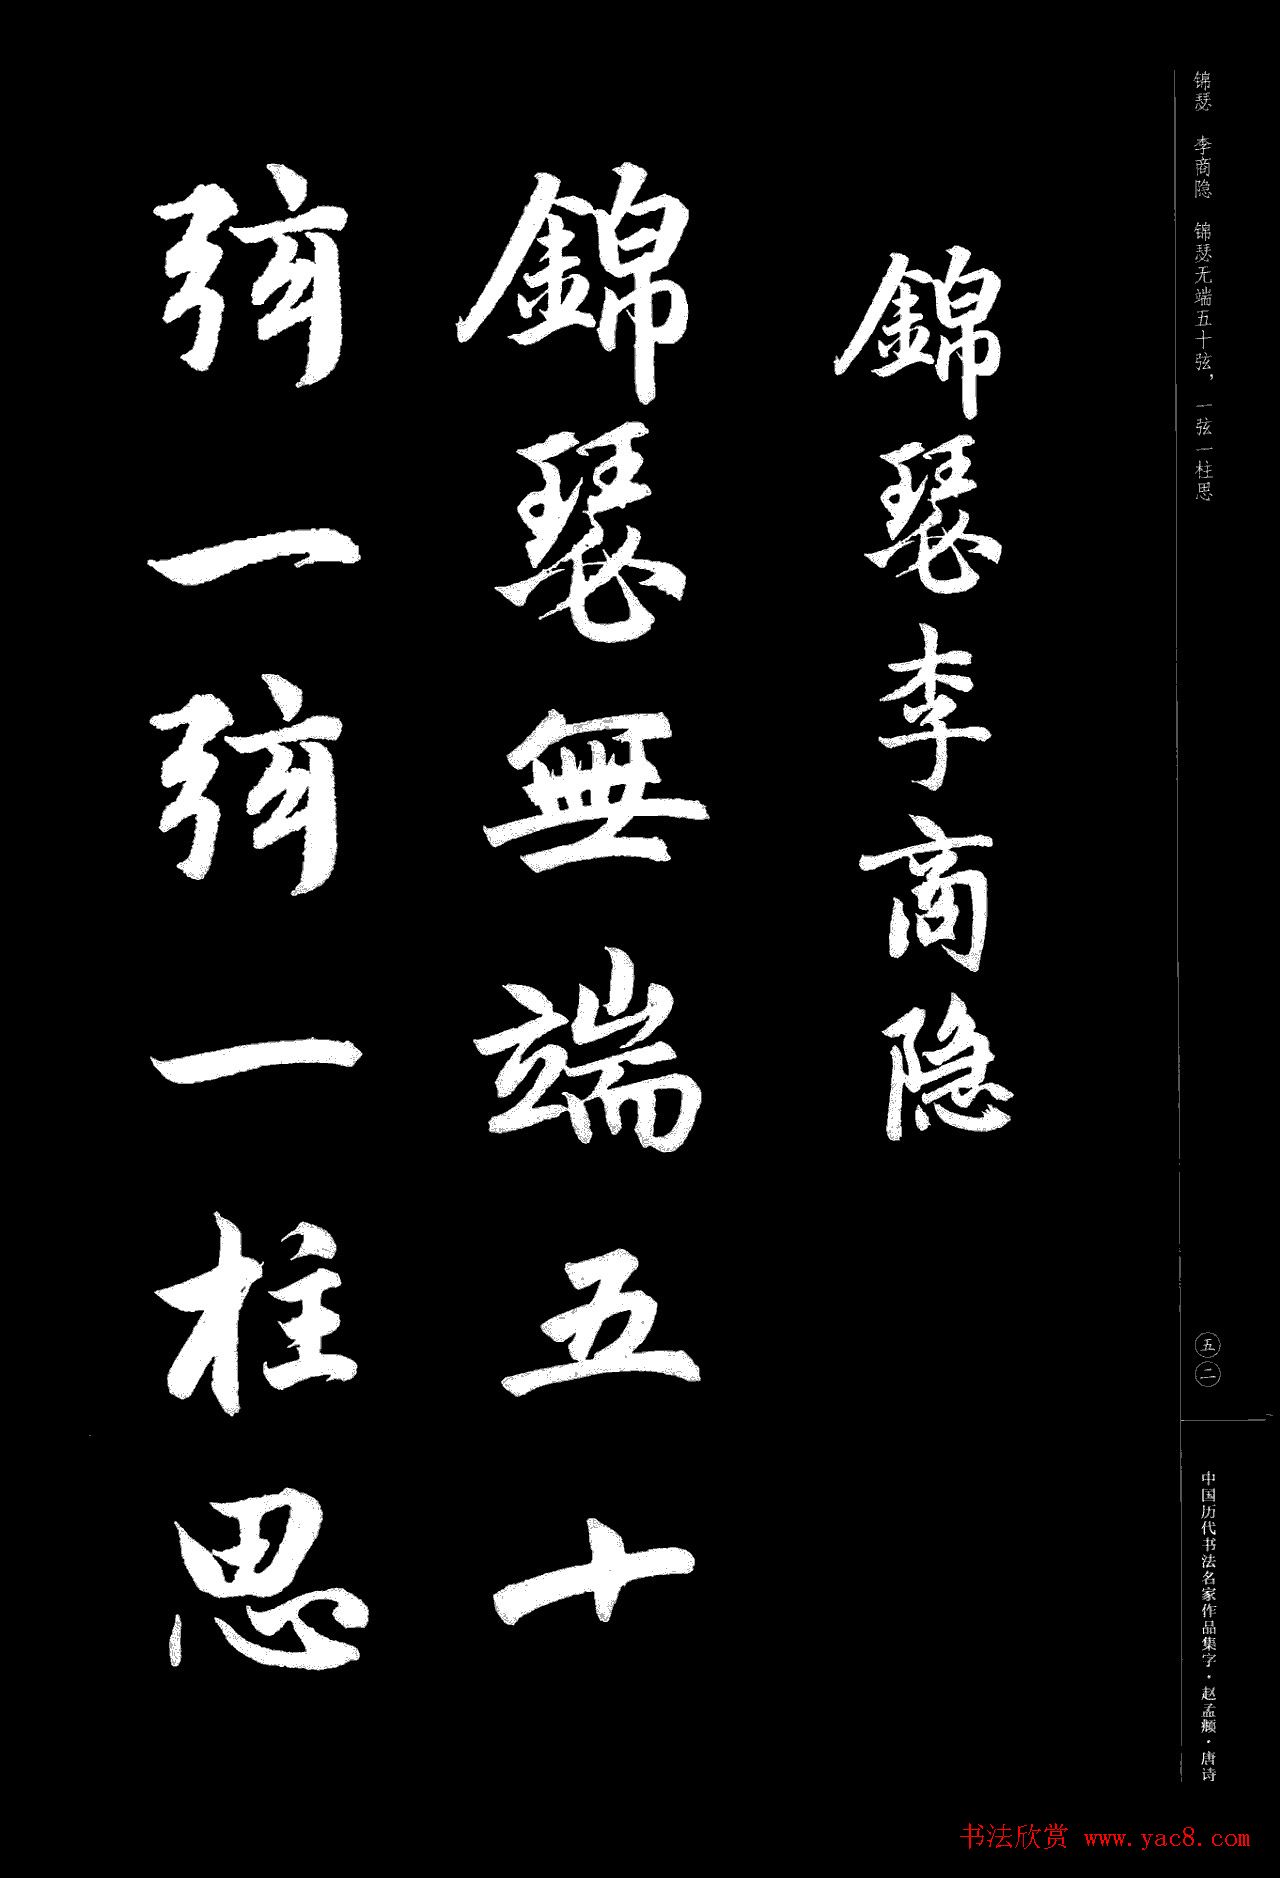 锦瑟　李商隐　锦瑟无端五十弦，一弦一柱思
五二
中国历代书法名家作品集字·赵孟頫·唐诗
錦瑟李商隐
錦瑟無端五十
弦一弦一柱思
书法欣赏 www.yac8.com